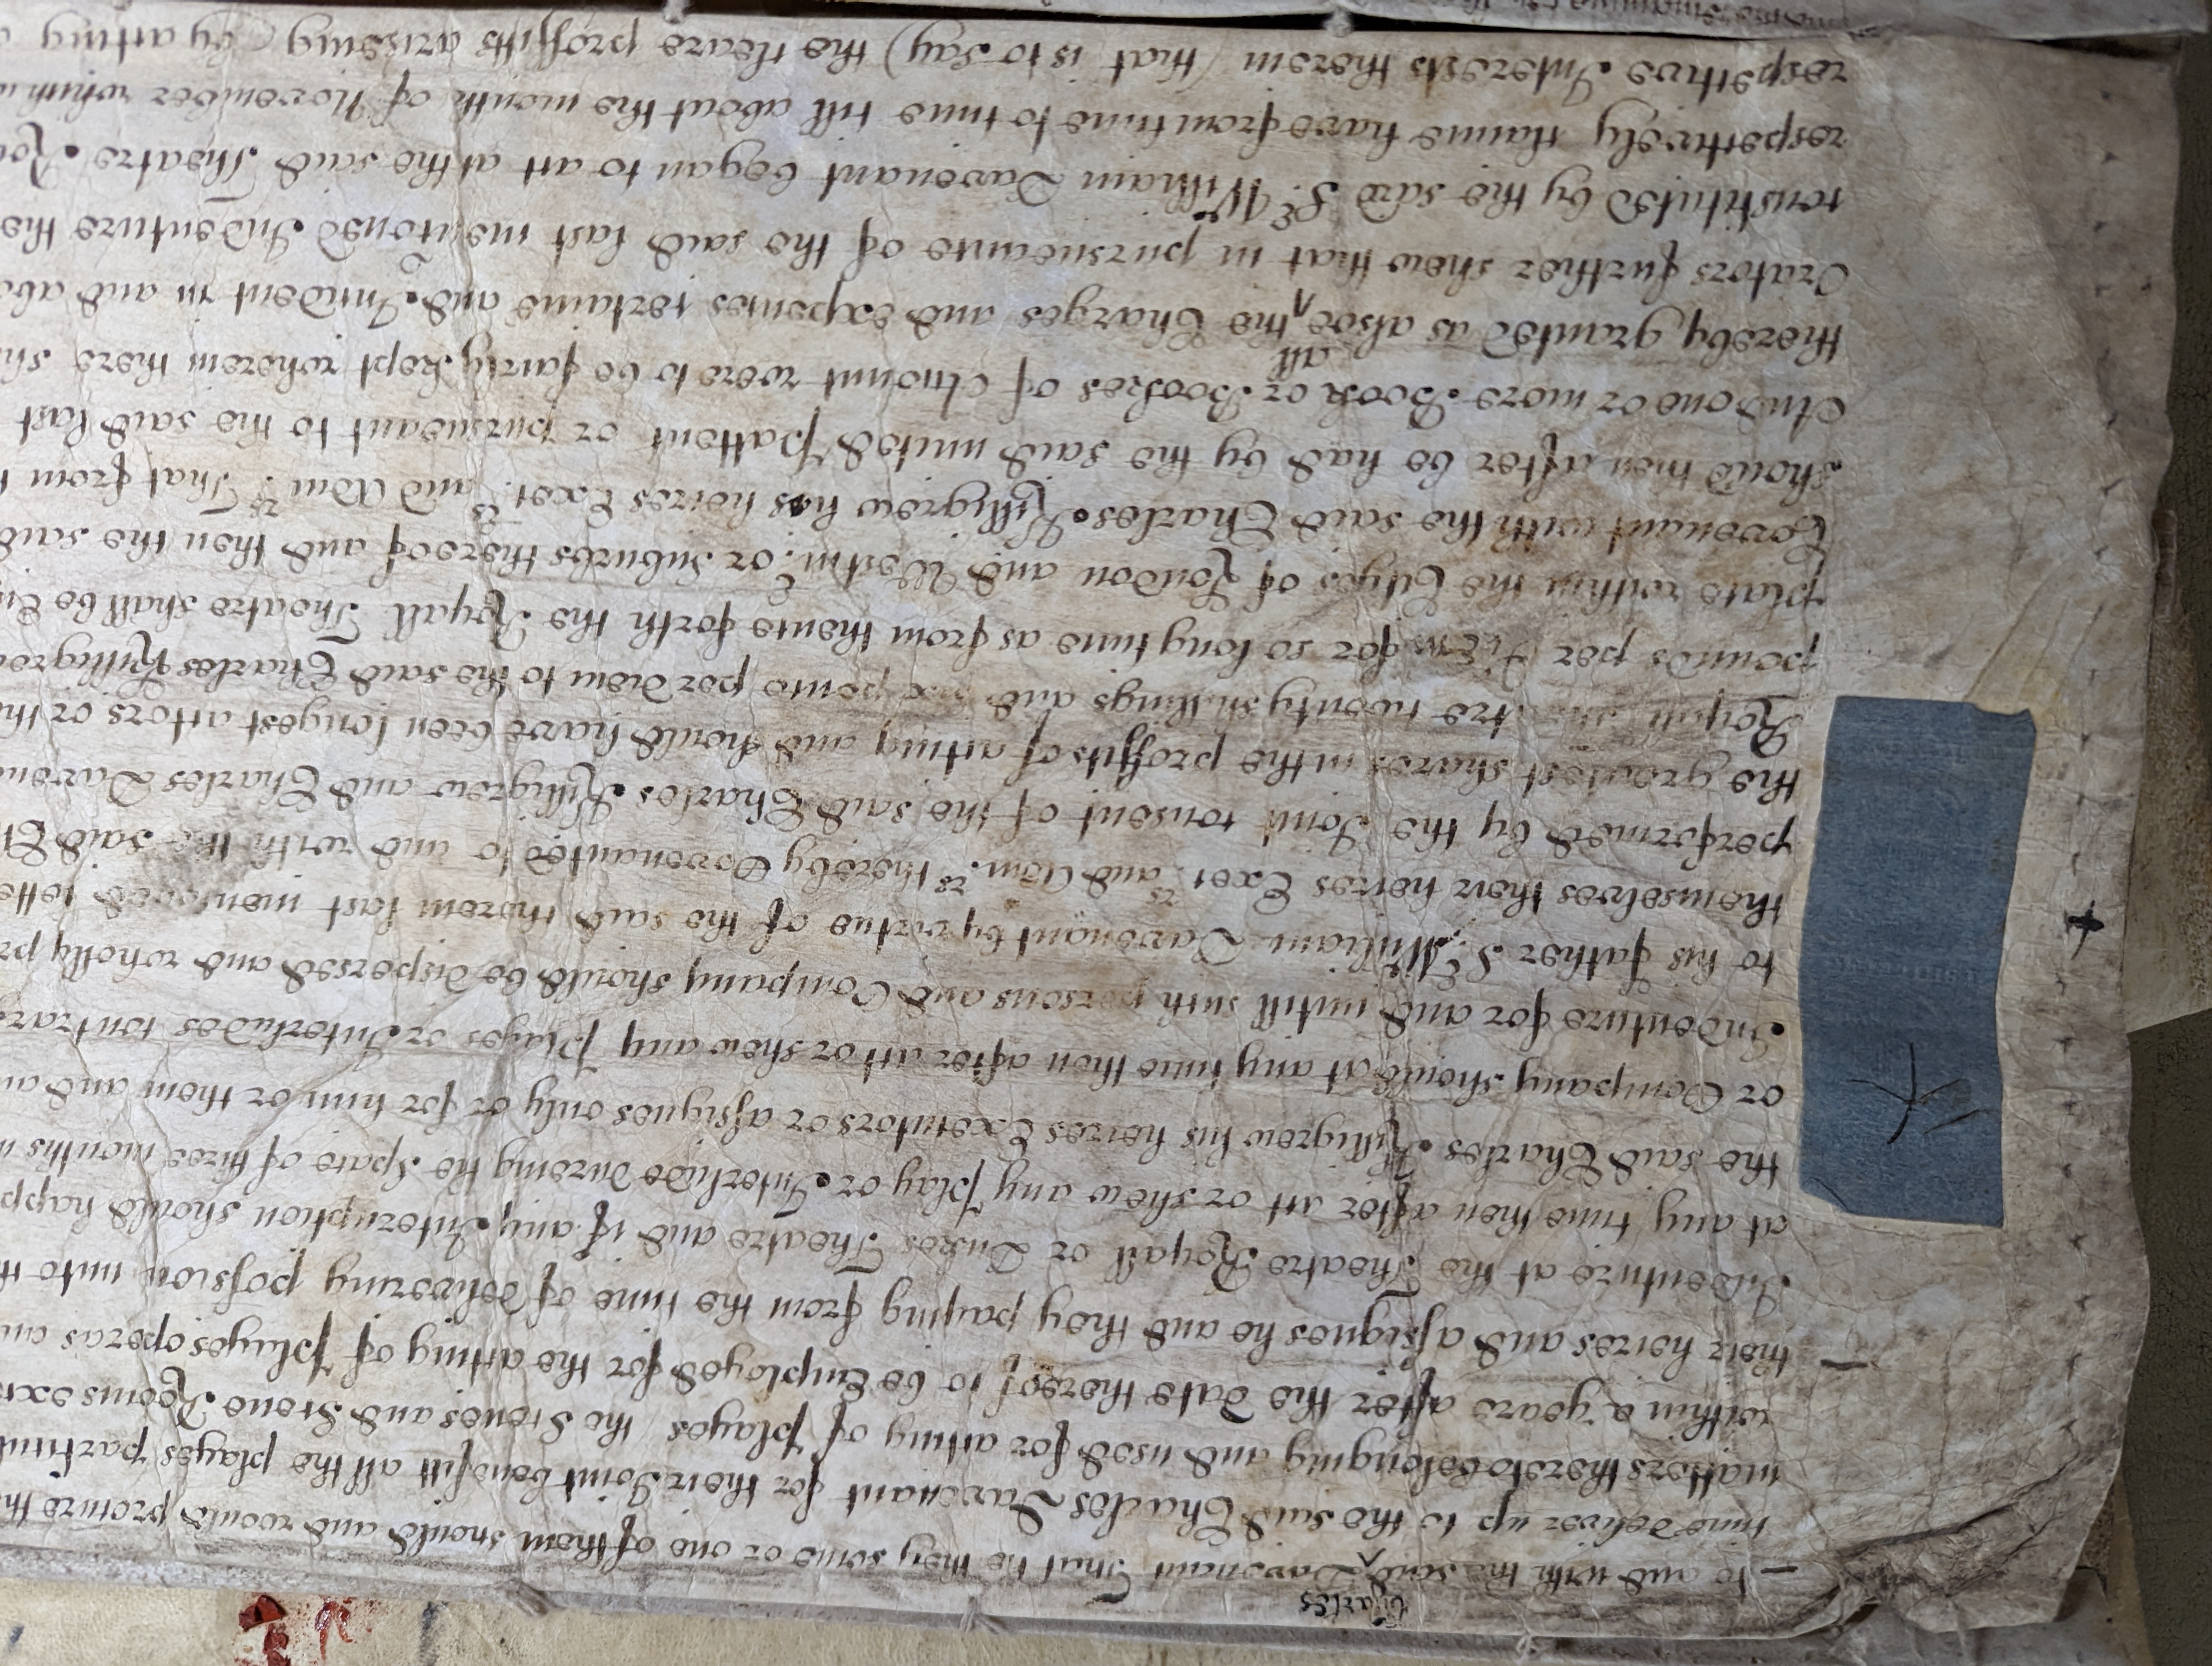 Charles
– to and with the said ^ Davenant That he they some or one of them should and would procure th
time deliver up to the said Charles Davenant for their Joint benefitt all the playes particul
matters thereto belonging and used for acting of Playes the Scenes and Scene Roomes
within a yeare after the date thereof to be Employed for the acting of Playes operas an
– their heires and assignes he and they paying from the time of delivering possion unto
Indenture at the Theatre Royall or Dukes Theatre and if any Interuption should happ
at any time then after act or shew any Play or Interlude dureing the Space of three months
the said Charles Killigrew his heires Executors or assignes only or for him or them and
or Company should at any time then after act or shew any Playes or Interludes contrar
Indenture for and untill such persons and Company should be dispersed and wholly pr
to his father Sr. William Davenant by virtue of the said therein last menconed lette
themselves their heires Exet.rs and Adm.rs thereby Covenanted to and with the said Ch
performed by the Joint consent of the said Charles Killigrew and Charles Daven
the greatest shares in the proffits of acting and should have been longest actors or th
Royall Theatre twenty shillings and six pence per diem to the said Charles Killigre
pounds per diem for so long time as from thence forth the Royall Theatre shall be
place within the Cityes of London and Westm.r or suburbs thereof and then the said
Covenant with the said Charles Killigrew his heires Exet.rs and Adm.rs That from
should then after be had by the said united Pattent or pursueant to the said last
And one or more Book or Bookes of Account were to be fairly kept wherein there sh
all
thereby granted as alsoe ^ the Charges and expences certaine and Incident in and abo
Orators further shew that in pursueance of the said last menconed Indenture the
constituted by the said Sr. William Davenant began to act at the said Theatre Ro
respectively claime have from time to time till about the month of November
respective Interests therein (that is to say) the cleare proffitts ariseing by acting